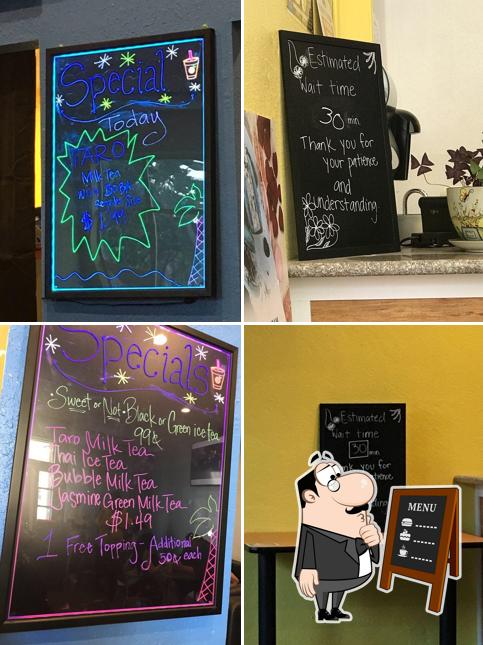 Special
Today
TARO
Milk Tea
$1.49
Estimated
Wait time
30 min
Thank you for
your patience
and
understanding
Specials
Sweet or Not Black or Green ice tea
99¢
Taro Milk Tea
Thai Ice Tea
Bubble Milk Tea
Jasmine Green Milk Tea
$1.49
1 Free Topping - Additional
50¢ each
Estimated
Wait time
30 min
you for
MENU